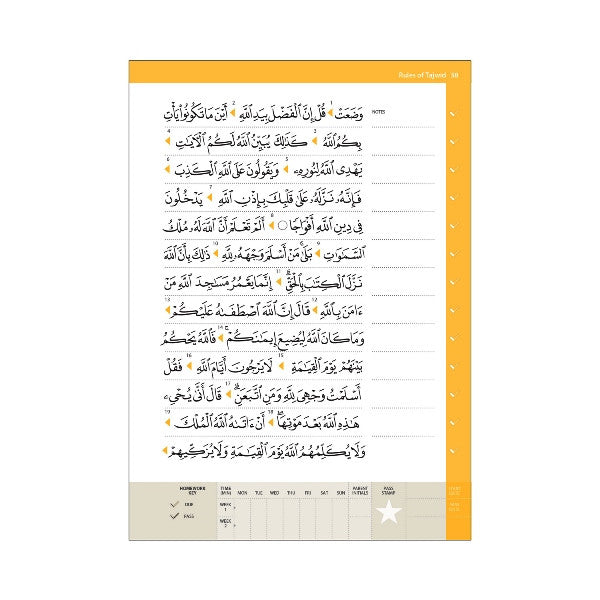 Rules of Tajwid 59
وَضَعَتْ 1 قُلْ إِنَّ ٱلْفَضْلَ بِيَدِ ٱللَّهِ 2 أَيْنَ مَا تَكُونُوا۟ يَأْتِ
NOTES
بِكُمُ ٱللَّهُ 3 كَذَٰلِكَ يُبَيِّنُ ٱللَّهُ لَكُمُ ٱلْءَايَٰتِ 4
يَهْدِى ٱللَّهُ لِنُورِهِۦ 5 وَيَقُولُونَ عَلَى ٱللَّهِ ٱلْكَذِبَ 6
فَإِنَّهُۥ نَزَّلَهُۥ عَلَىٰ قَلْبِكَ بِإِذْنِ ٱللَّهِ 7 يَدْخُلُونَ
فِى دِينِ ٱللَّهِ أَفْوَاجًا 8 أَلَمْ تَعْلَمْ أَنَّ ٱللَّهَ لَهُۥ مُلْكُ
ٱلسَّمَٰوَٰتِ 9 بَلَىٰ مَنْ أَسْلَمَ وَجْهَهُۥ لِلَّهِ 10 ذَٰلِكَ بِأَنَّ ٱللَّهَ
نَزَّلَ ٱلْكِتَٰبَ بِٱلْحَقِّ 11 إِنَّمَا يَعْمُرُ مَسَٰجِدَ ٱللَّهِ مَنْ
ءَامَنَ بِٱللَّهِ 12 قَالَ إِنَّ ٱللَّهَ ٱصْطَفَىٰهُ عَلَيْكُمْ 13
وَمَا كَانَ ٱللَّهُ لِيُضِيعَ إِيمَٰنَكُمْ 14 فَٱللَّهُ يَحْكُمُ
بَيْنَهُمْ يَوْمَ ٱلْقِيَٰمَةِ 15 لَا يَرْجُونَ أَيَّامَ ٱللَّهِ 16 فَقُلْ
أَسْلَمْتُ وَجْهِىَ لِلَّهِ وَمَنِ ٱتَّبَعَنِ 17 قَالَ أَنَّىٰ يُحْىِۦ
هَٰذِهِ ٱللَّهُ بَعْدَ مَوْتِهَا 18 أَنْ ءَاتَىٰهُ ٱللَّهُ ٱلْمُلْكَ 19
وَلَا يُكَلِّمُهُمُ ٱللَّهُ يَوْمَ ٱلْقِيَٰمَةِ وَلَا يُزَكِّيهِمْ
HOMEWORK KEY TIME (MIN) MON TUE WED THU FRI SAT SUN PARENT INITIALS PASS STAMP
DUE WEEK 1
PASS WEEK 2